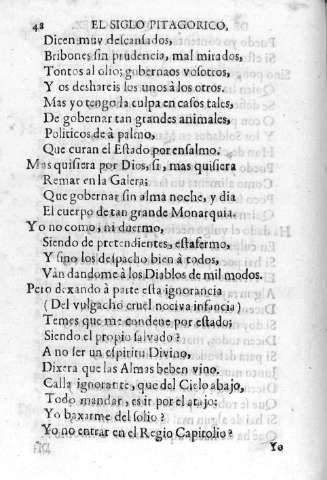 48 EL SIGLO PITAGORICO,
Dicen muy descansados,
Bribones sin prudencia, mal mirados,
Tontos al olio; gobernaos vosotros,
Y os deshareis los unos à los otros.
Mas yo tengo la culpa en casos tales,
De gobernar tan grandes animales,
Politicos de à palmo,
Que curan el Estado por ensalmo.
Mas quisiera por Dios, si, mas quisiera
Remar en la Galera;
Que gobernar sin alma noche, y dia
El cuerpo de tan grande Monarquia.
Yo no como, ni duermo,
Siendo de pretendientes, estafermo,
Y sino los despacho bien à todos,
Ván dandome à los Diablos de mil modos.
Pero dexando à parte esta ignorancia
(Del vulgacho cruel nociva infancia)
Temes que me condene por estado;
Siendo el propio salvado?
A no ser un espiritu Divino,
Dixera que las Almas beben vino.
Calla ignorante, que del Cielo abajo,
Todo mandar, es ir por el atajo;
Yo baxarme del solio?
Yo no entrar en el Regio Capitolio?
Yo